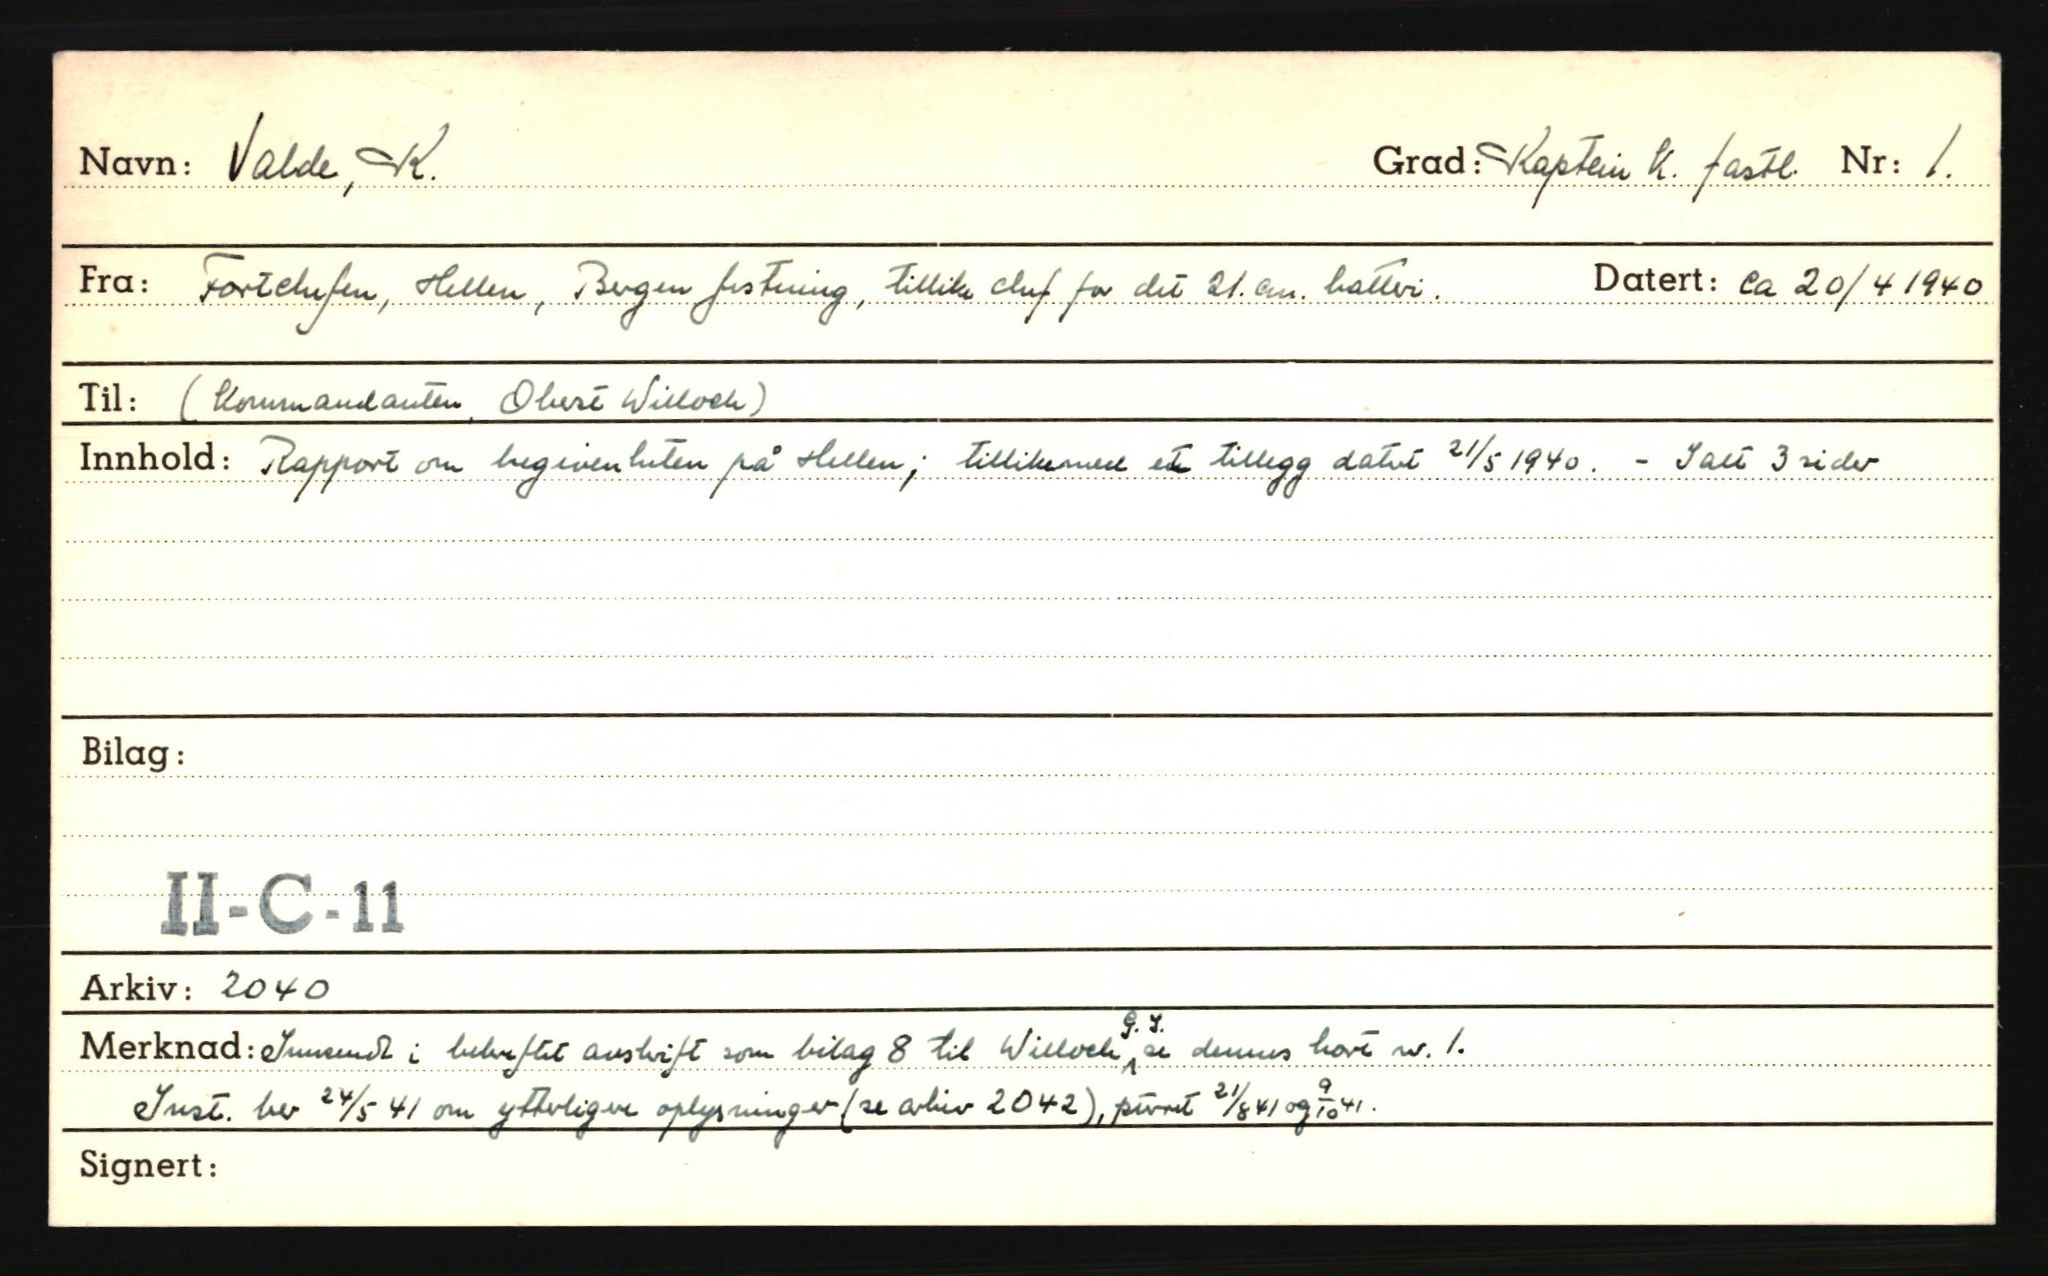 Navn: Valde, K. Grad: Kaptein K. fastl. Nr: 1.
Fra: Fortchefen, Hellen, Bergen festning, tillike chef for det 21. cm. batteri. Datert: ca 20/4 1940
Til: (Kommandanten, Oberst Willoch)
Innhold: Rapport om begivenheten på Hellen; tillikemed et tillegg datert 21/5 1940. - Ialt 3 sider
Bilag:
II-C-11
Arkiv: 2040
Merknad: Innsendt i bekreftet avskrift som bilag 8 til Willoch G. I. se dennes kort nr. 1.
Inst. ber 24/5 41 om ytterligere oplysninger (se arkiv 2042), purret 21/8 41 og 9/10 41.
Signert: